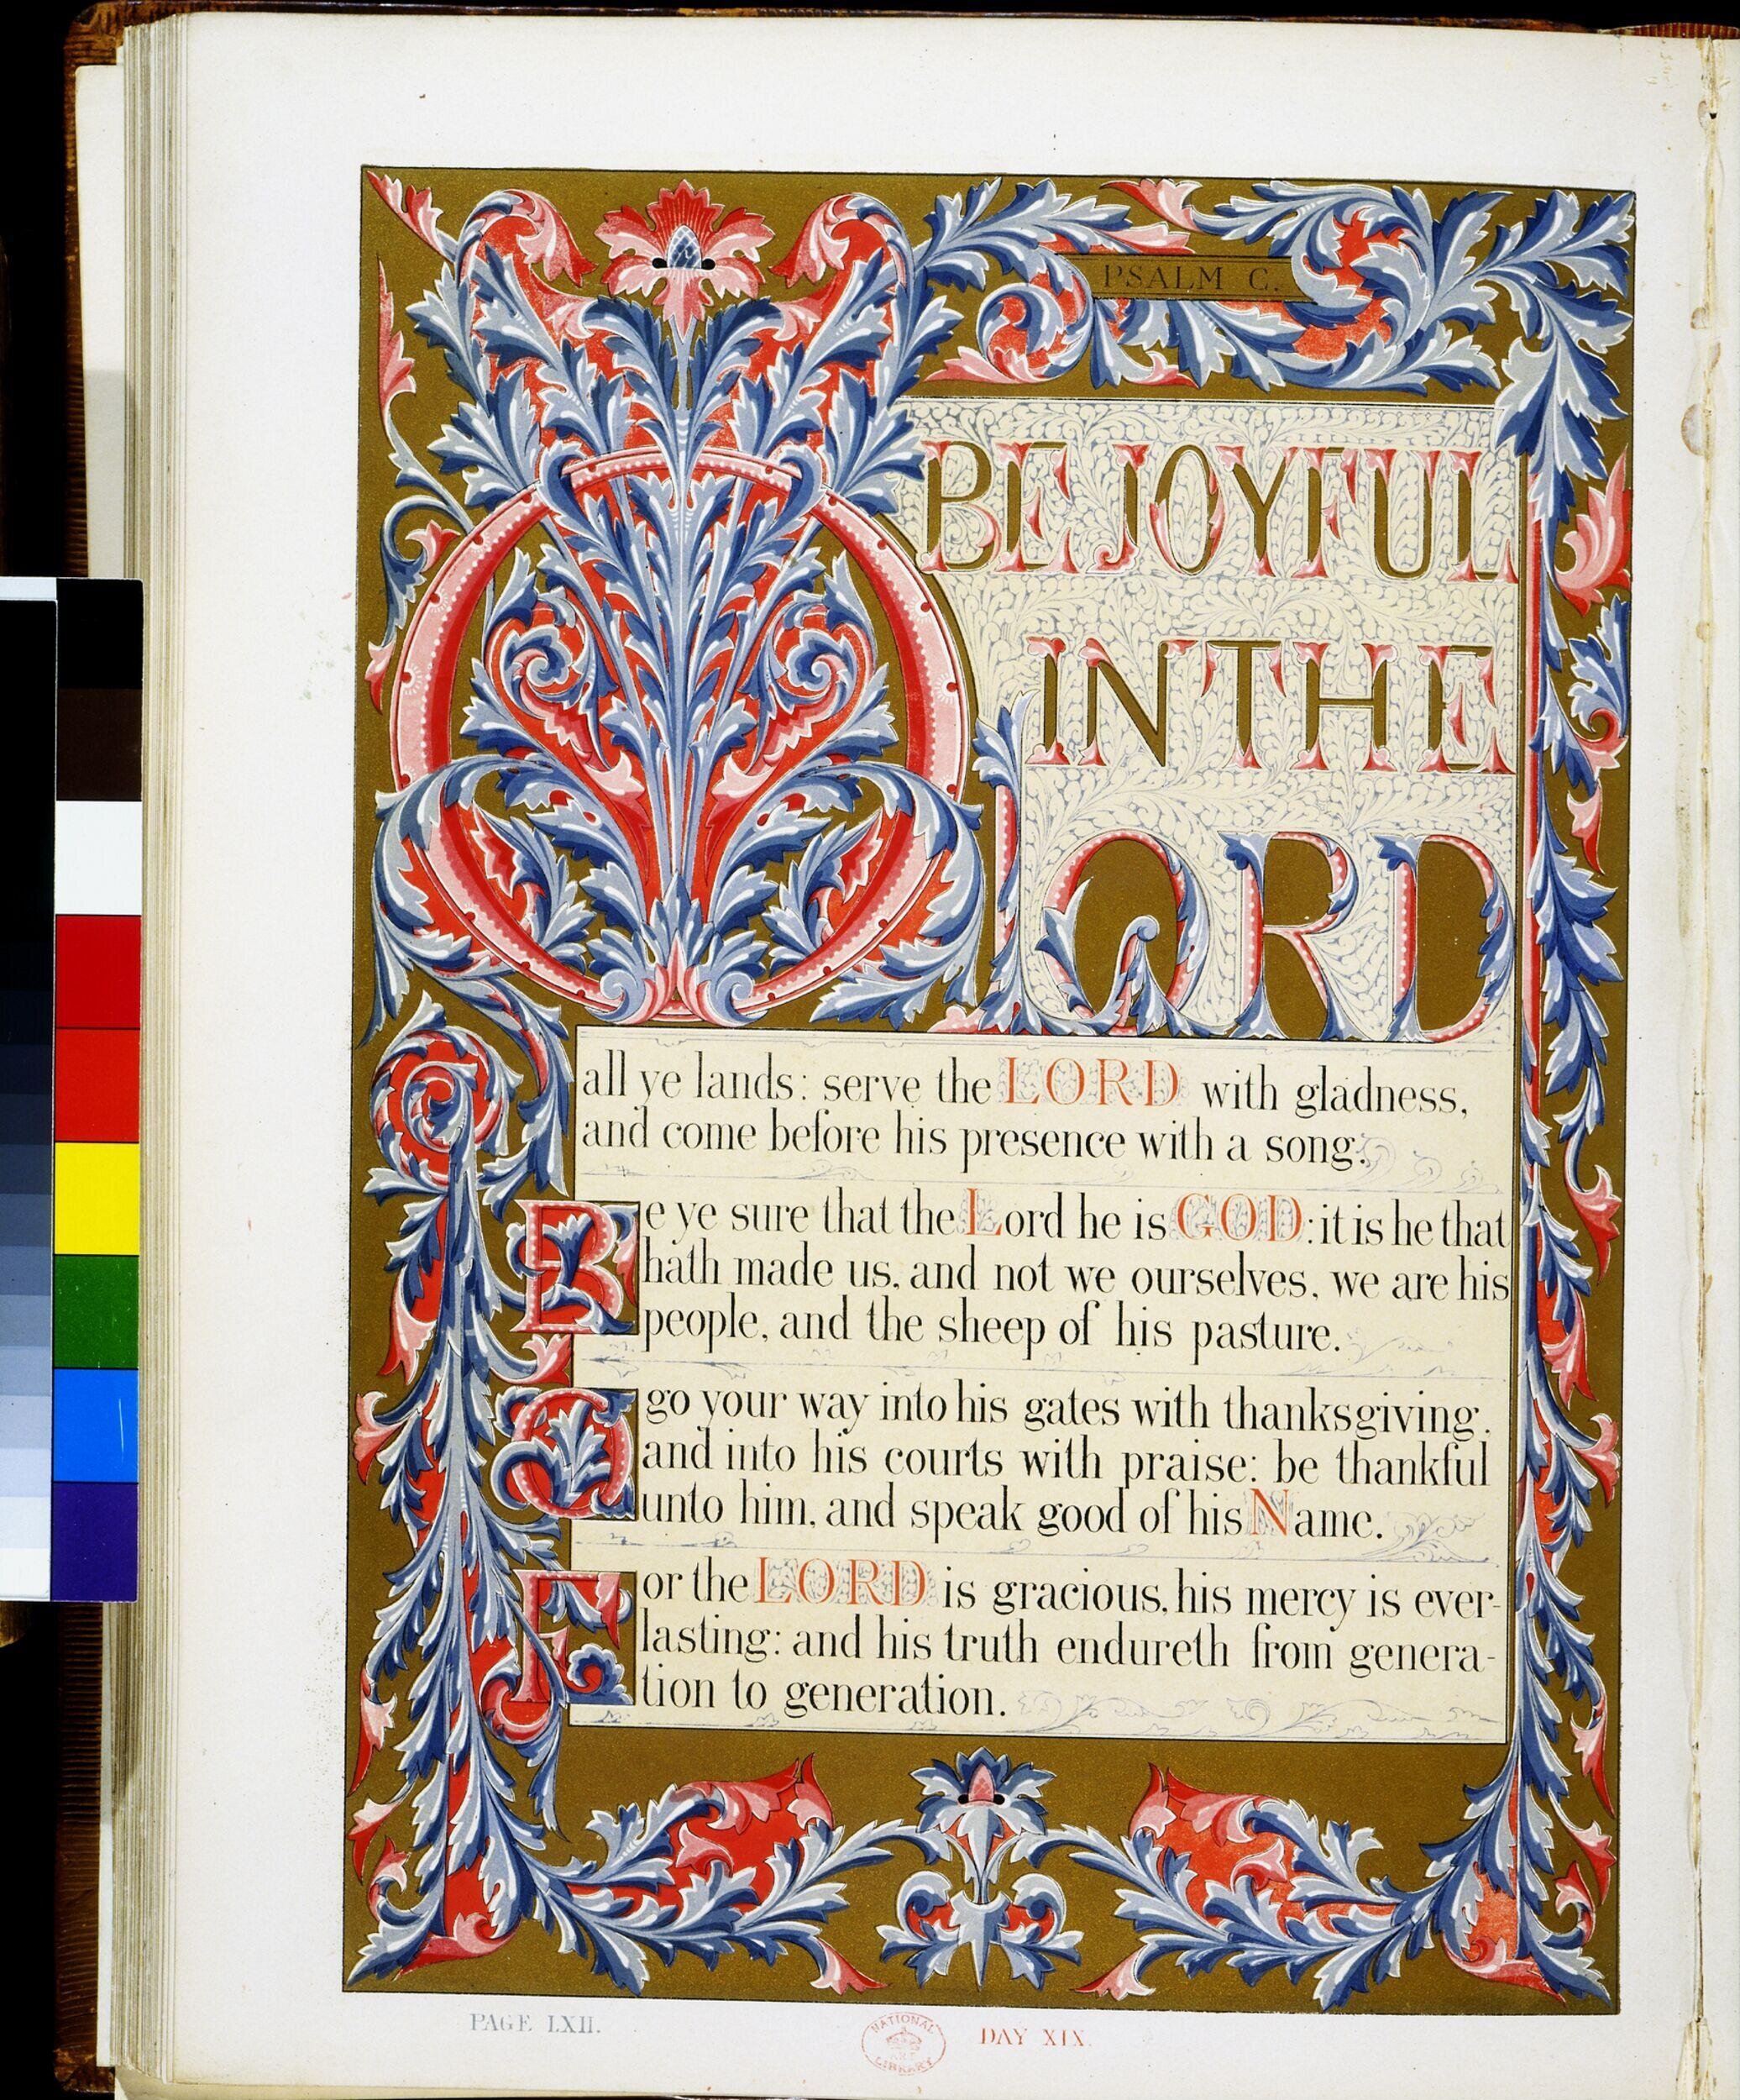 PSALM C.
O BE JOYFUL
IN THE
LORD
all ye lands: serve the LORD with gladness,
and come before his presence with a song.
Be ye sure that the Lord he is GOD: it is he that
hath made us, and not we ourselves, we are his
people, and the sheep of his pasture.
O go your way into his gates with thanksgiving,
and into his courts with praise: be thankful
unto him, and speak good of his Name.
For the LORD is gracious, his mercy is ever-
lasting: and his truth endureth from genera-
tion to generation.
PAGE LXII.
NATIONAL
LIBRARY
DAY XIX.